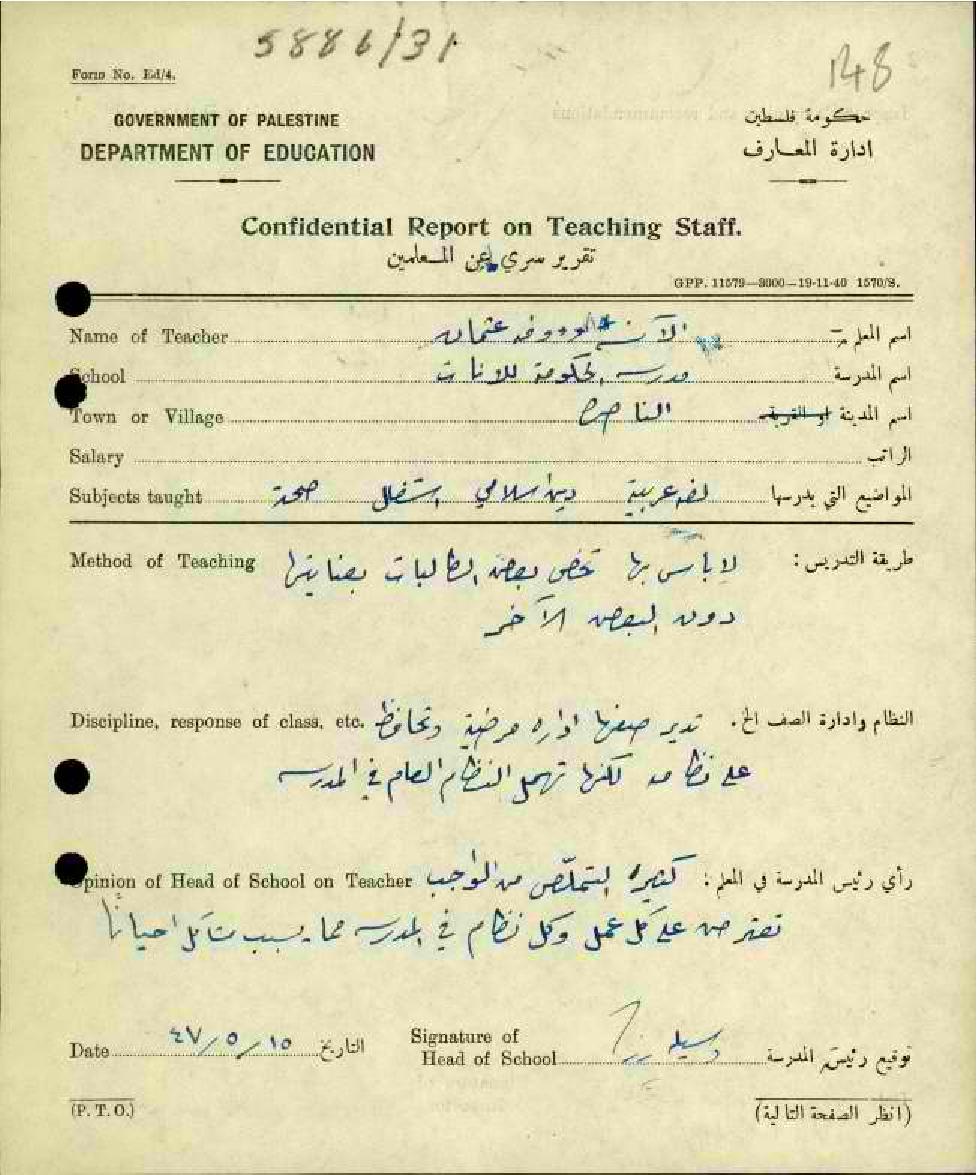 5886/31
148
Form No. Ed/4.
GOVERNMENT OF PALESTINE
حكومة فلسطين
DEPARTMENT OF EDUCATION
ادارة المعارف
Confidential Report on Teaching Staff.
تقرير سري عن المعلمين
GPP. 11579—3000—19-11-40 1570/S.
Name of Teacher
الآنسة عثمان
اسم المعلم
School
مدرسة الحكومة للاناث
اسم المدرسة
Town or Village
الناصرة
اسم المدينة او القرية
Salary
الراتب
Subjects taught
لغة عربية دين اسلامي اشغال صحة
المواضيع التي يدرسها
Method of Teaching
طريقة التدريس :
لا بأس بها تخص بعض الطالبات بعنايتها
دون البعض الآخر
Discipline, response of class, etc.
النظام وادارة الصف الخ.
تدير صفها اداره مرضية وتحافظ
على نظامه لكنها تهمل النظام العام في المدرسه
Opinion of Head of School on Teacher
رأي رئيس المدرسة في المعلم :
كثيرة التملّص من الواجب
تعترض على كل عمل وكل نظام في المدرسه مما يسبب مشاكل احياناً
Date
١٥/٥/٤٧
التاريخ
Signature of
Head of School
وسيله
توقيع رئيس المدرسة
(P. T. O.)
(انظر الصفحة التالية)